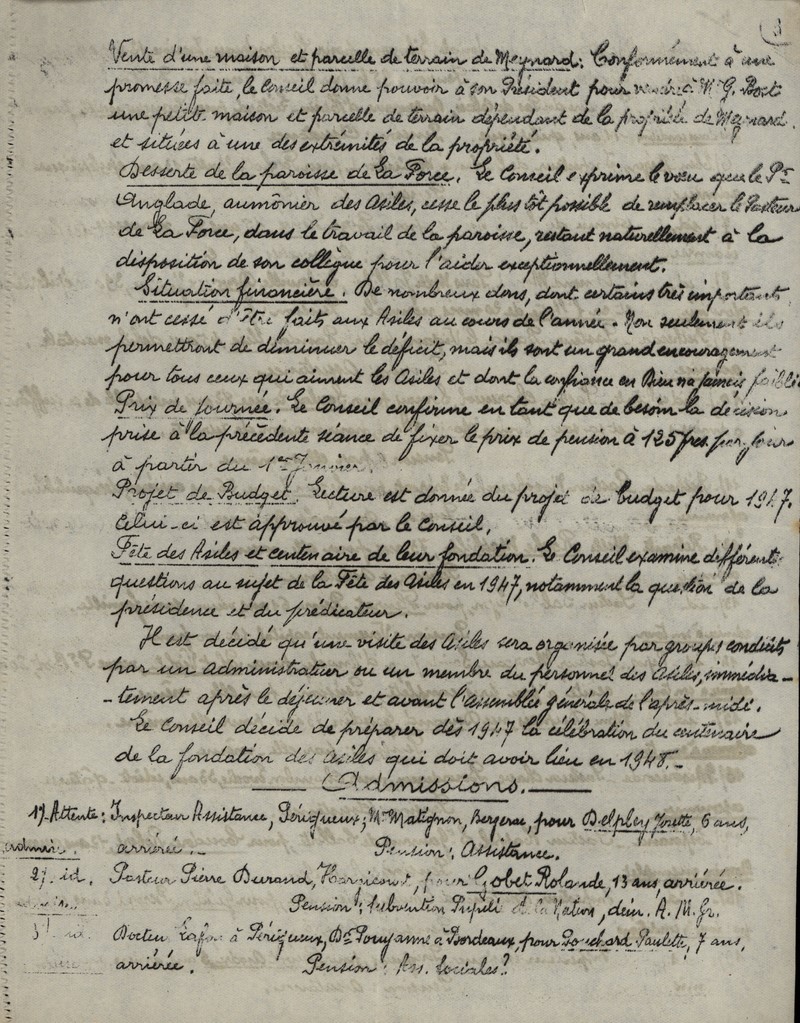 Vente d'une maison et parcelle de terrain de Meynard: Conformément à une
promesse faite, le Conseil donne pouvoir à son Président pour vendre à Mr G. Bost
une petite maison et parcelle de terrain dépendant de la propriété de Meynard
et situées à une des extrémités de la propriété.
Desserte de la paroisse de La Force. Le Conseil exprime le vœu que le Pr
Anglade, aumônier des Asiles, cesse le plus tôt possible de remplacer le Pasteur
de La Force, dans le travail de la paroisse, restant naturellement à la
disposition de son collègue pour l'aider exceptionnellement.
Situation financière. De nombreux dons, dont certains très importants
n'ont cessé d'être faits aux Asiles au cours de l'année. Non seulement ils
permettront de diminuer le déficit, mais ils sont un grand encouragement
pour tous ceux qui aiment les Asiles et dont la confiance en Dieu n'a jamais faibli
Prix de journée. Le Conseil confirme en tant que de besoin la décision
prise à la précédente séance de fixer le prix de pension à 125 frs par jour
à partir du 1er Janvier.
Projet de Budget. Lecture est donnée du projet de budget pour 1947.
Celui-ci est approuvé par le Conseil.
Fête des Asiles et centenaire de leur fondation. Le Conseil examine différentes
questions au sujet de la Fête des Asiles en 1947, notamment la question de la
présidence et du prédicateur.
Il est décidé qu'une visite des Asiles sera organisée par groupes conduits
par un administrateur ou un membre du personnel des Asiles, immédia-
-tement après le déjeuner et avant l'Assemblée générale de l'après-midi.
Le Conseil décide de préparer dès 1947 la célébration du centenaire
de la fondation des Asiles qui doit avoir lieu en 1948.-
Admissions.
1). Attente: Inspecteur Assistance, Périgueux; Mr Matignon, Bergerac, pour Delpley, 6 ans,
arriérée.- Pension: Assistance.
2). id. Pasteur Pierre Durand, pour Gobet Rolande, 13 ans, arriérée.
Pension: subvention Pupille de la Nation, dem. A.M.Gr.
3). id. Docteur Lafon à Périgueux, Dr Pouyanne à Bordeaux, pour Bouchard Paulette, 7 ans,
arriérée. Pension: Ass. Sociales?